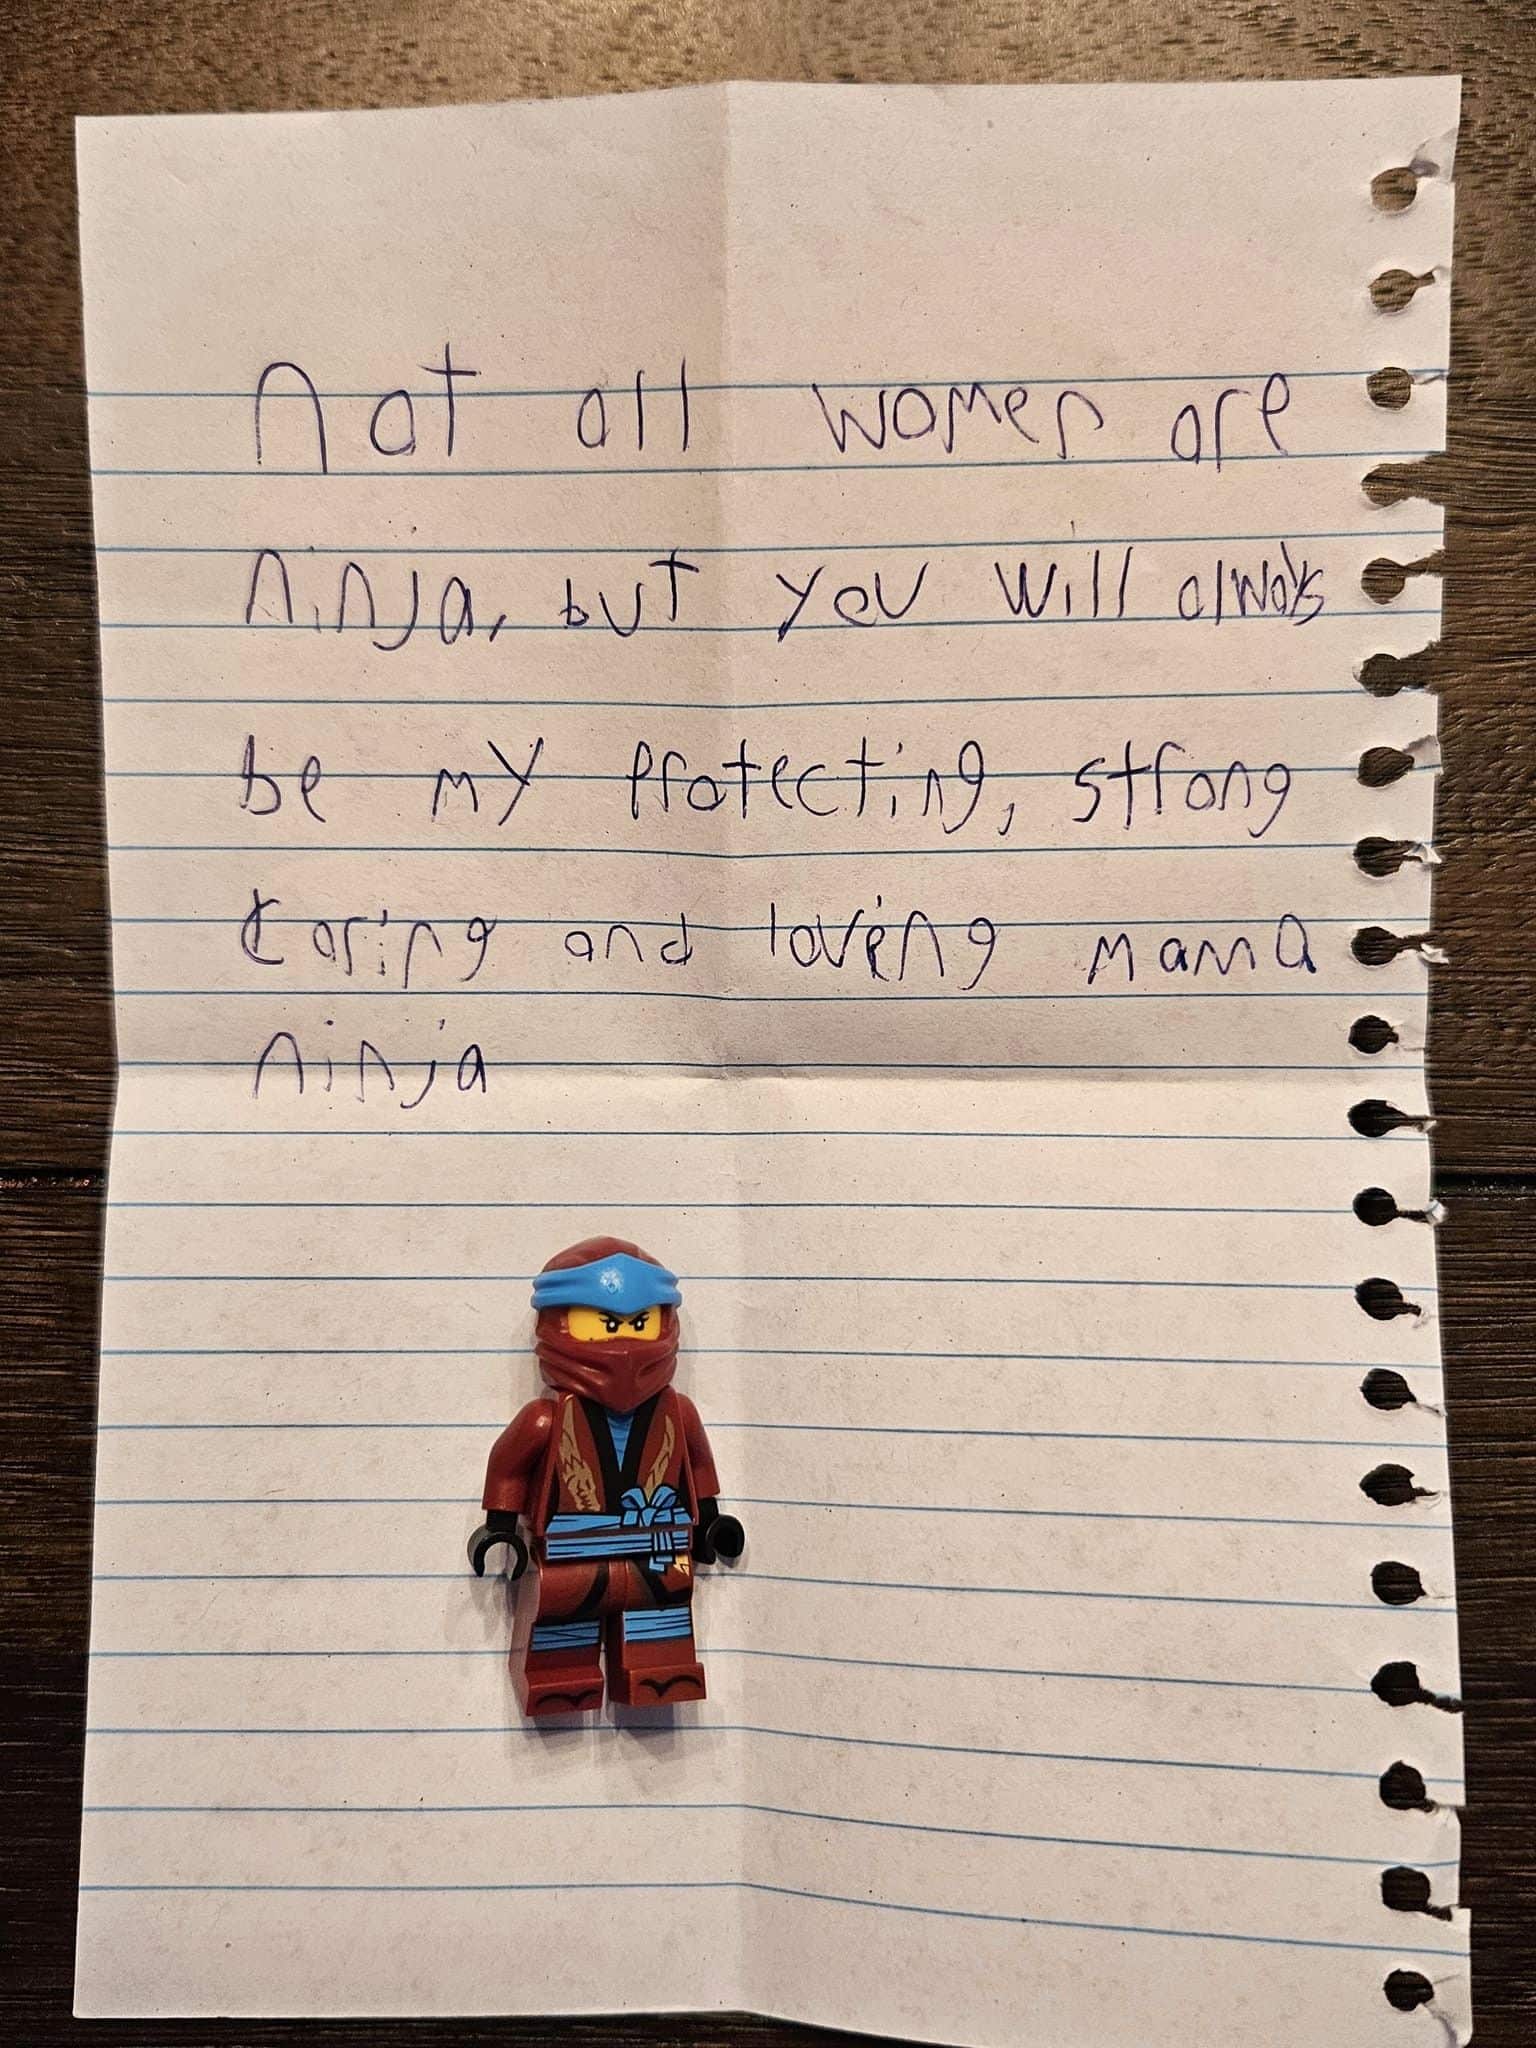 not all women are
ninja, but you will always
be my protecting, strong
caring and loving mama
ninja